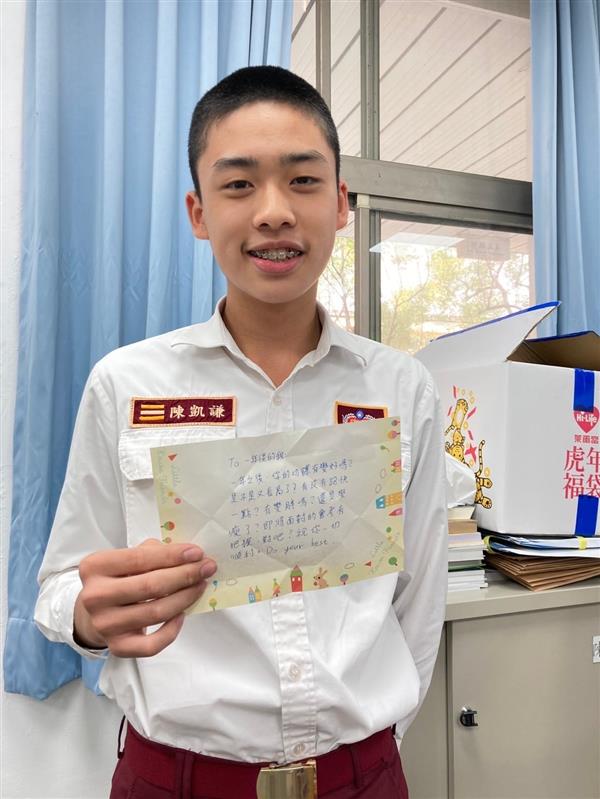 陳凱謙
To 一年後的我:
一年之後，你的功課有變好嗎?
是不是又長高了? 有沒有跑快
一點? 有變胖嗎? 還是變
瘦了? 即將面對的會考有
把握，對吧? 祝你一切
順利。Do your best.
Little
Little
Hi-Life
萊爾富
虎年
福袋